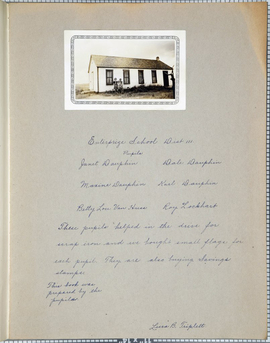 Enterprize School Dist 10
Pupils
Janet Dauphin Dale Dauphin
Maxine Dauphin Karl Dauphin
Betty Lou Van Huss Roy Lockhart
These pupils helped in the drive for
scrap iron and we bought small flags for
each pupil. They are also buying Savings
stamps.
This book was
prepared by the
pupils.
B. Triplett